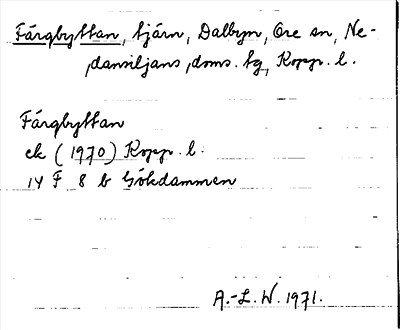 Färgbyttan, tjärn, Dalbyn, Ore sn, Ne-
dansiljans doms. tg, Kopp. l.
Färgbyttan
ek (1970) Kopp. l.
14 F 8 b Gökdammen
A.-L. W. 1971.